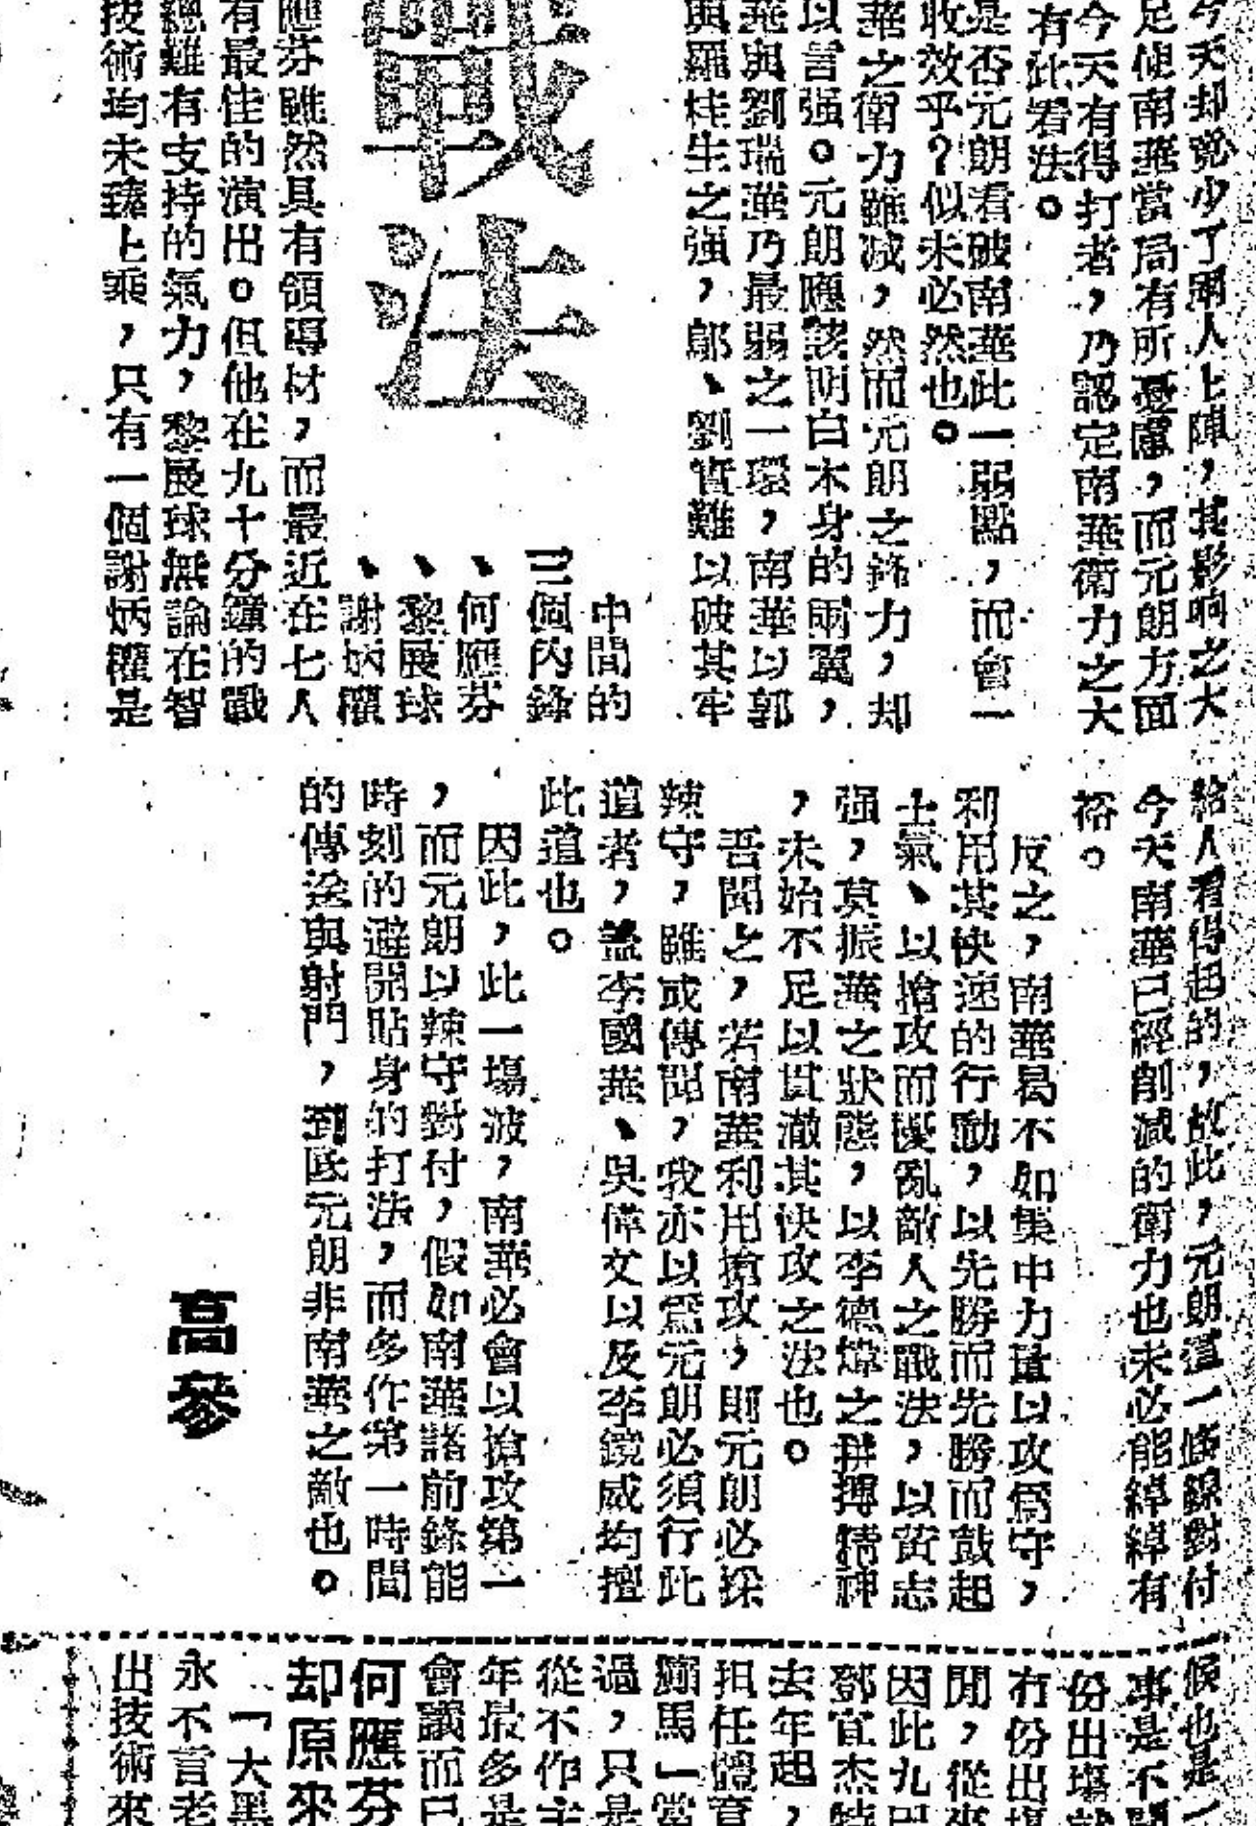 今天却說少了兩人上陣，其影响之大
足使南華當局有所憂慮，而元朗方面
今天有得打者，乃認定南華衛力之大
有此看法。
是否元朗看破南華此一弱點，而會一
收效乎？似未必然也。
華之衛力雖減，然而元朗之鋒力，却
以言强。元朗應該明白本身的兩翼，
華與劉瑞華乃最弱之一環，南華以郭
與羅桂生之强，鄔、劉實難以破其牢
戰法
中間的
三個內鋒
、何應芬
、黎展球
、謝炳權
應芬雖然具有領導材，而最近在七人
有最佳的演出。但他在九十分鐘的戰
總難有支持的氣力，黎展球無論在智
技術均未臻上乘，只有一個謝炳權是
給人看得起的，故此，元朗這一條線對付
今天南華已經削減的衛力也未必能綽綽有
裕。
反之，南華曷不如集中力量以攻爲守，
利用其快速的行動，以先勝而先勝而鼓起
士氣、以搶攻而擾亂敵人之戰法，以黃志
强，莫振華之狀態，以李德煒之拼搏精神
，未始不足以貫澈其快攻之法也。
吾聞之，若南華利用搶攻，則元朗必採
辣守，雖或傳聞，我亦以爲元朗必須行此
道者，蓋李國燕、吳偉文以及李鏡威均擅
此道也。
因此，此一場波，南華必會以搶攻第一
，而元朗以辣守對付，假如南華諸前鋒能
時刻的避開貼身的打法，而多作第一時間
的傳送與射門，到底元朗非南華之敵也。
高參
候也是一
事是不
份出塲
有份出塲
閒，從來
因此九巴
鄧宜杰
去年起，
担任體育
馬」當
過，只是
從不作主
年最多是
會議而已
何應芬
却原來
「大黑
永不言老
出技術來